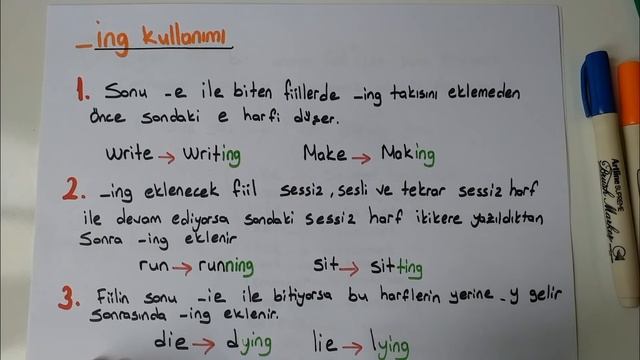 _ing kullanımı
1. Sonu -e ile biten fiillerde -ing takısını eklemeden
önce sondaki e harfi düşer.
write → writing Make → Making
2. -ing eklenecek fiil sessiz, sesli ve tekrar sessiz harf
ile devam ediyorsa sondaki sessiz harf ikikere yazıldıktan
Sonra -ing eklenir
run → running sit → sitting
3. Fiilin sonu -ie ile bitiyorsa bu harflerin yerine -y gelir
sonrasında -ing eklenir.
die → dying lie → lying
Artline SUPREME
Brush Marker